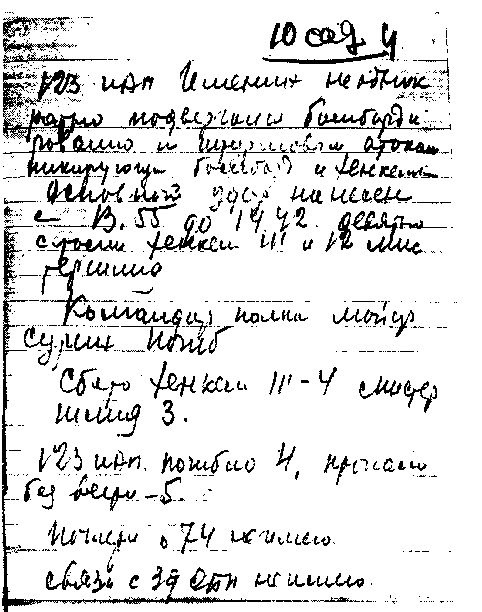 10 сад 4
123 иап Именин неоднок
ратно подвергали бомбарди
рованию и штурмовым атакам
пикирующи бомбард и хенкелям
Основной удар нанесен
с 13.55 до 14.42 девятью
хенкель III и 12 мис
Командир полка майор
Сурин погиб
Сбито хенкель III - 4 мистер
шмид 3.
123 иап. погибло 4, пропало
без вести - 5.
Потери о 74 не имею
связи с 39 бп не имею.